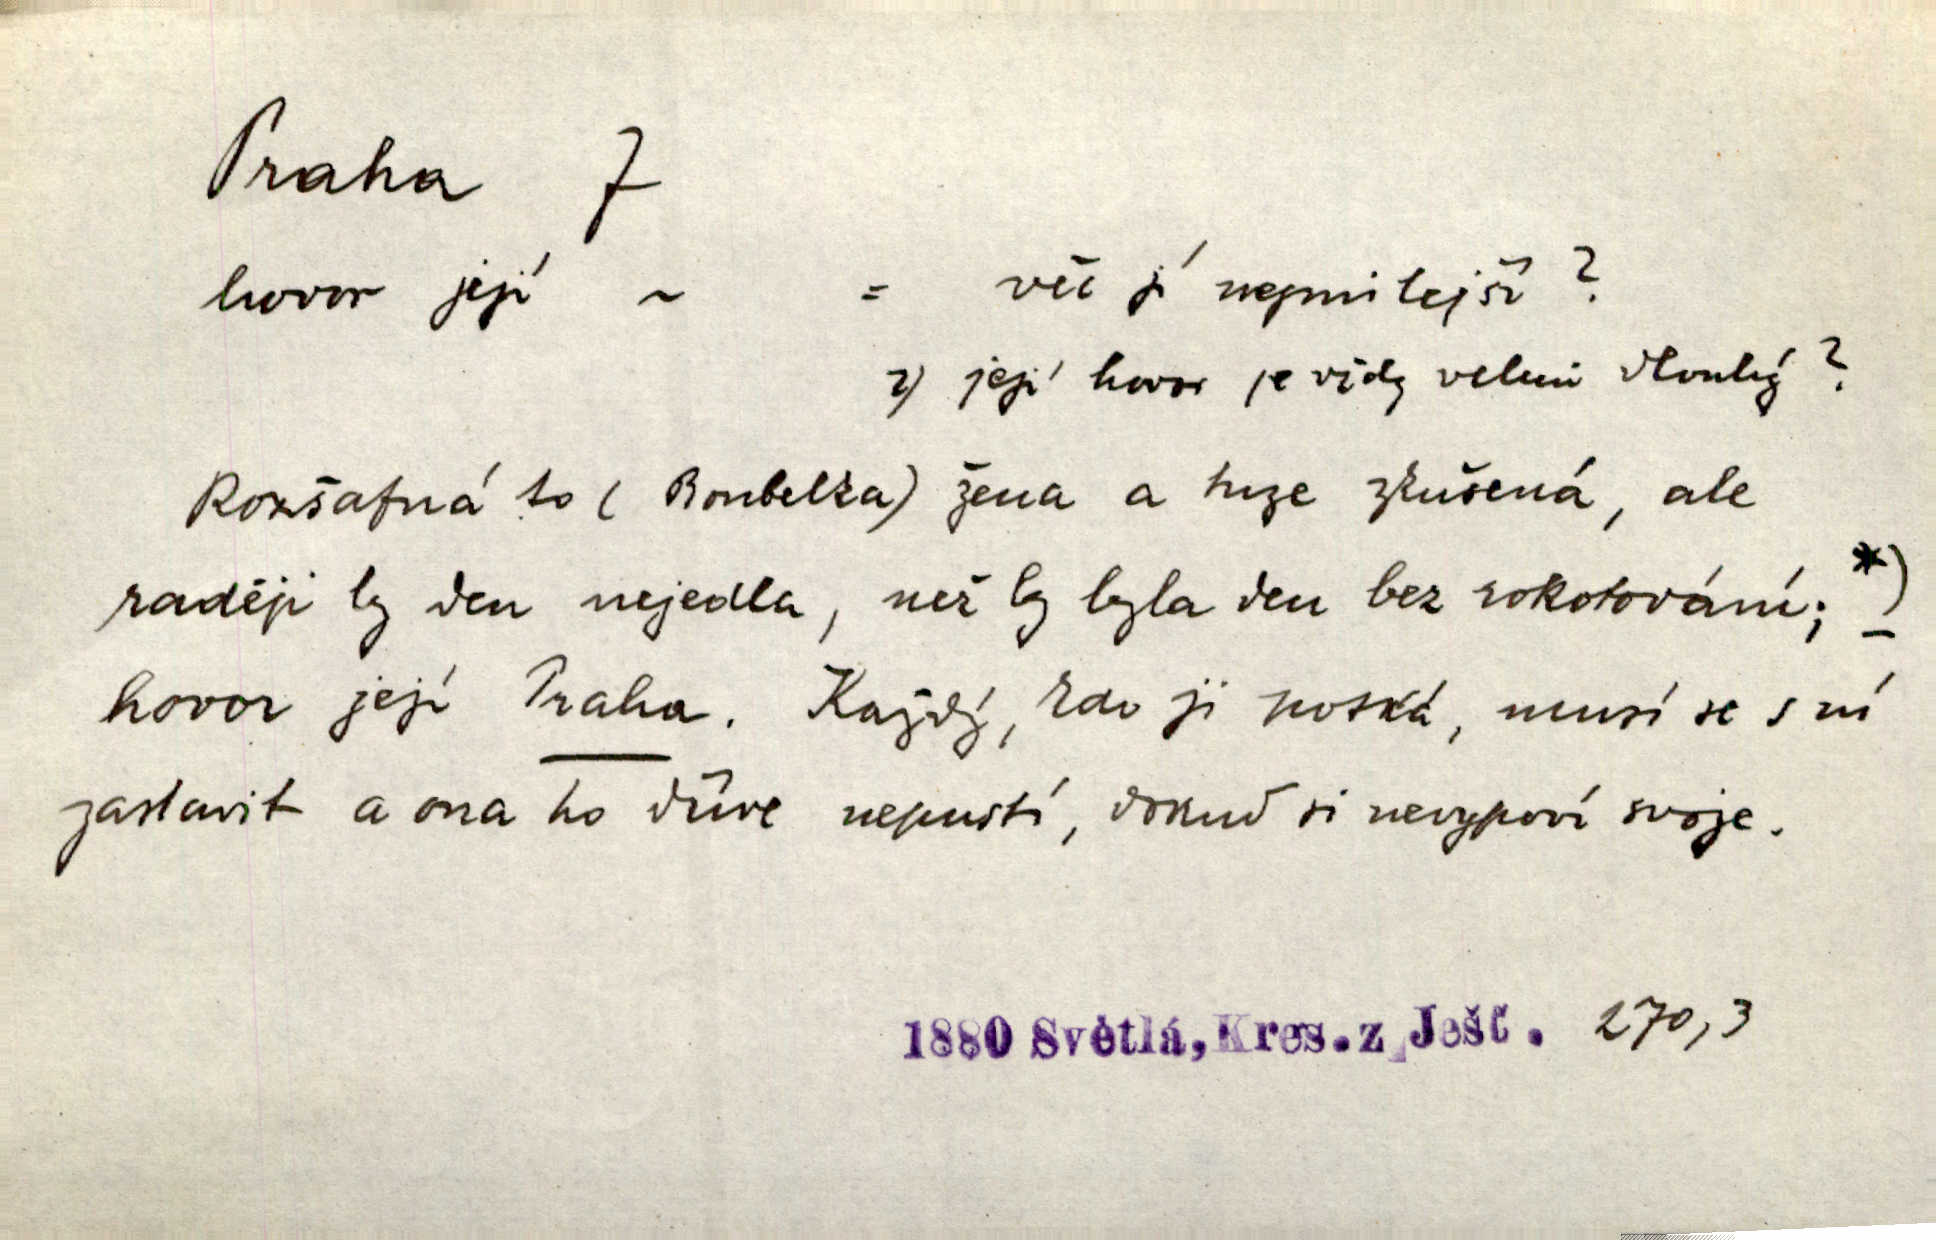 Praha f
hovor její ~ = věc jí nejmilejší ?
2) její hovor je vždy velmi dlouhý ?
Rozšafná to ( Boubelka) žena a tuze zkušená, ale
raději by den nejedla, než by byla den bez rokotování; *)
hovor její Praha. Každý, kdo ji potká, musí se s ní
zastavit a ona ho dříve nepustí, dokud si nevypoví svoje.
1880 Světlá, Kres. z Ješt. 270,3